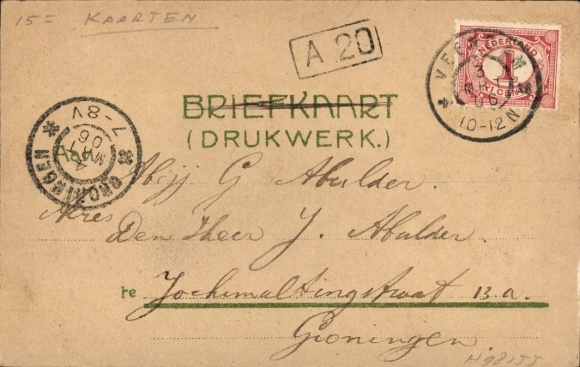 15= KAARTEN
A 20
NEDERLAND
1
VEENDAM
3
MRT
06
10-12 N
BRIEFKAART
(DRUKWERK.)
GRONINGEN
7-8V
4
MRT
06
Aan
Mej G Mulder
Adres
Den Heer J. Mulder
te Jochemaltingstraat 13.a.
Groningen